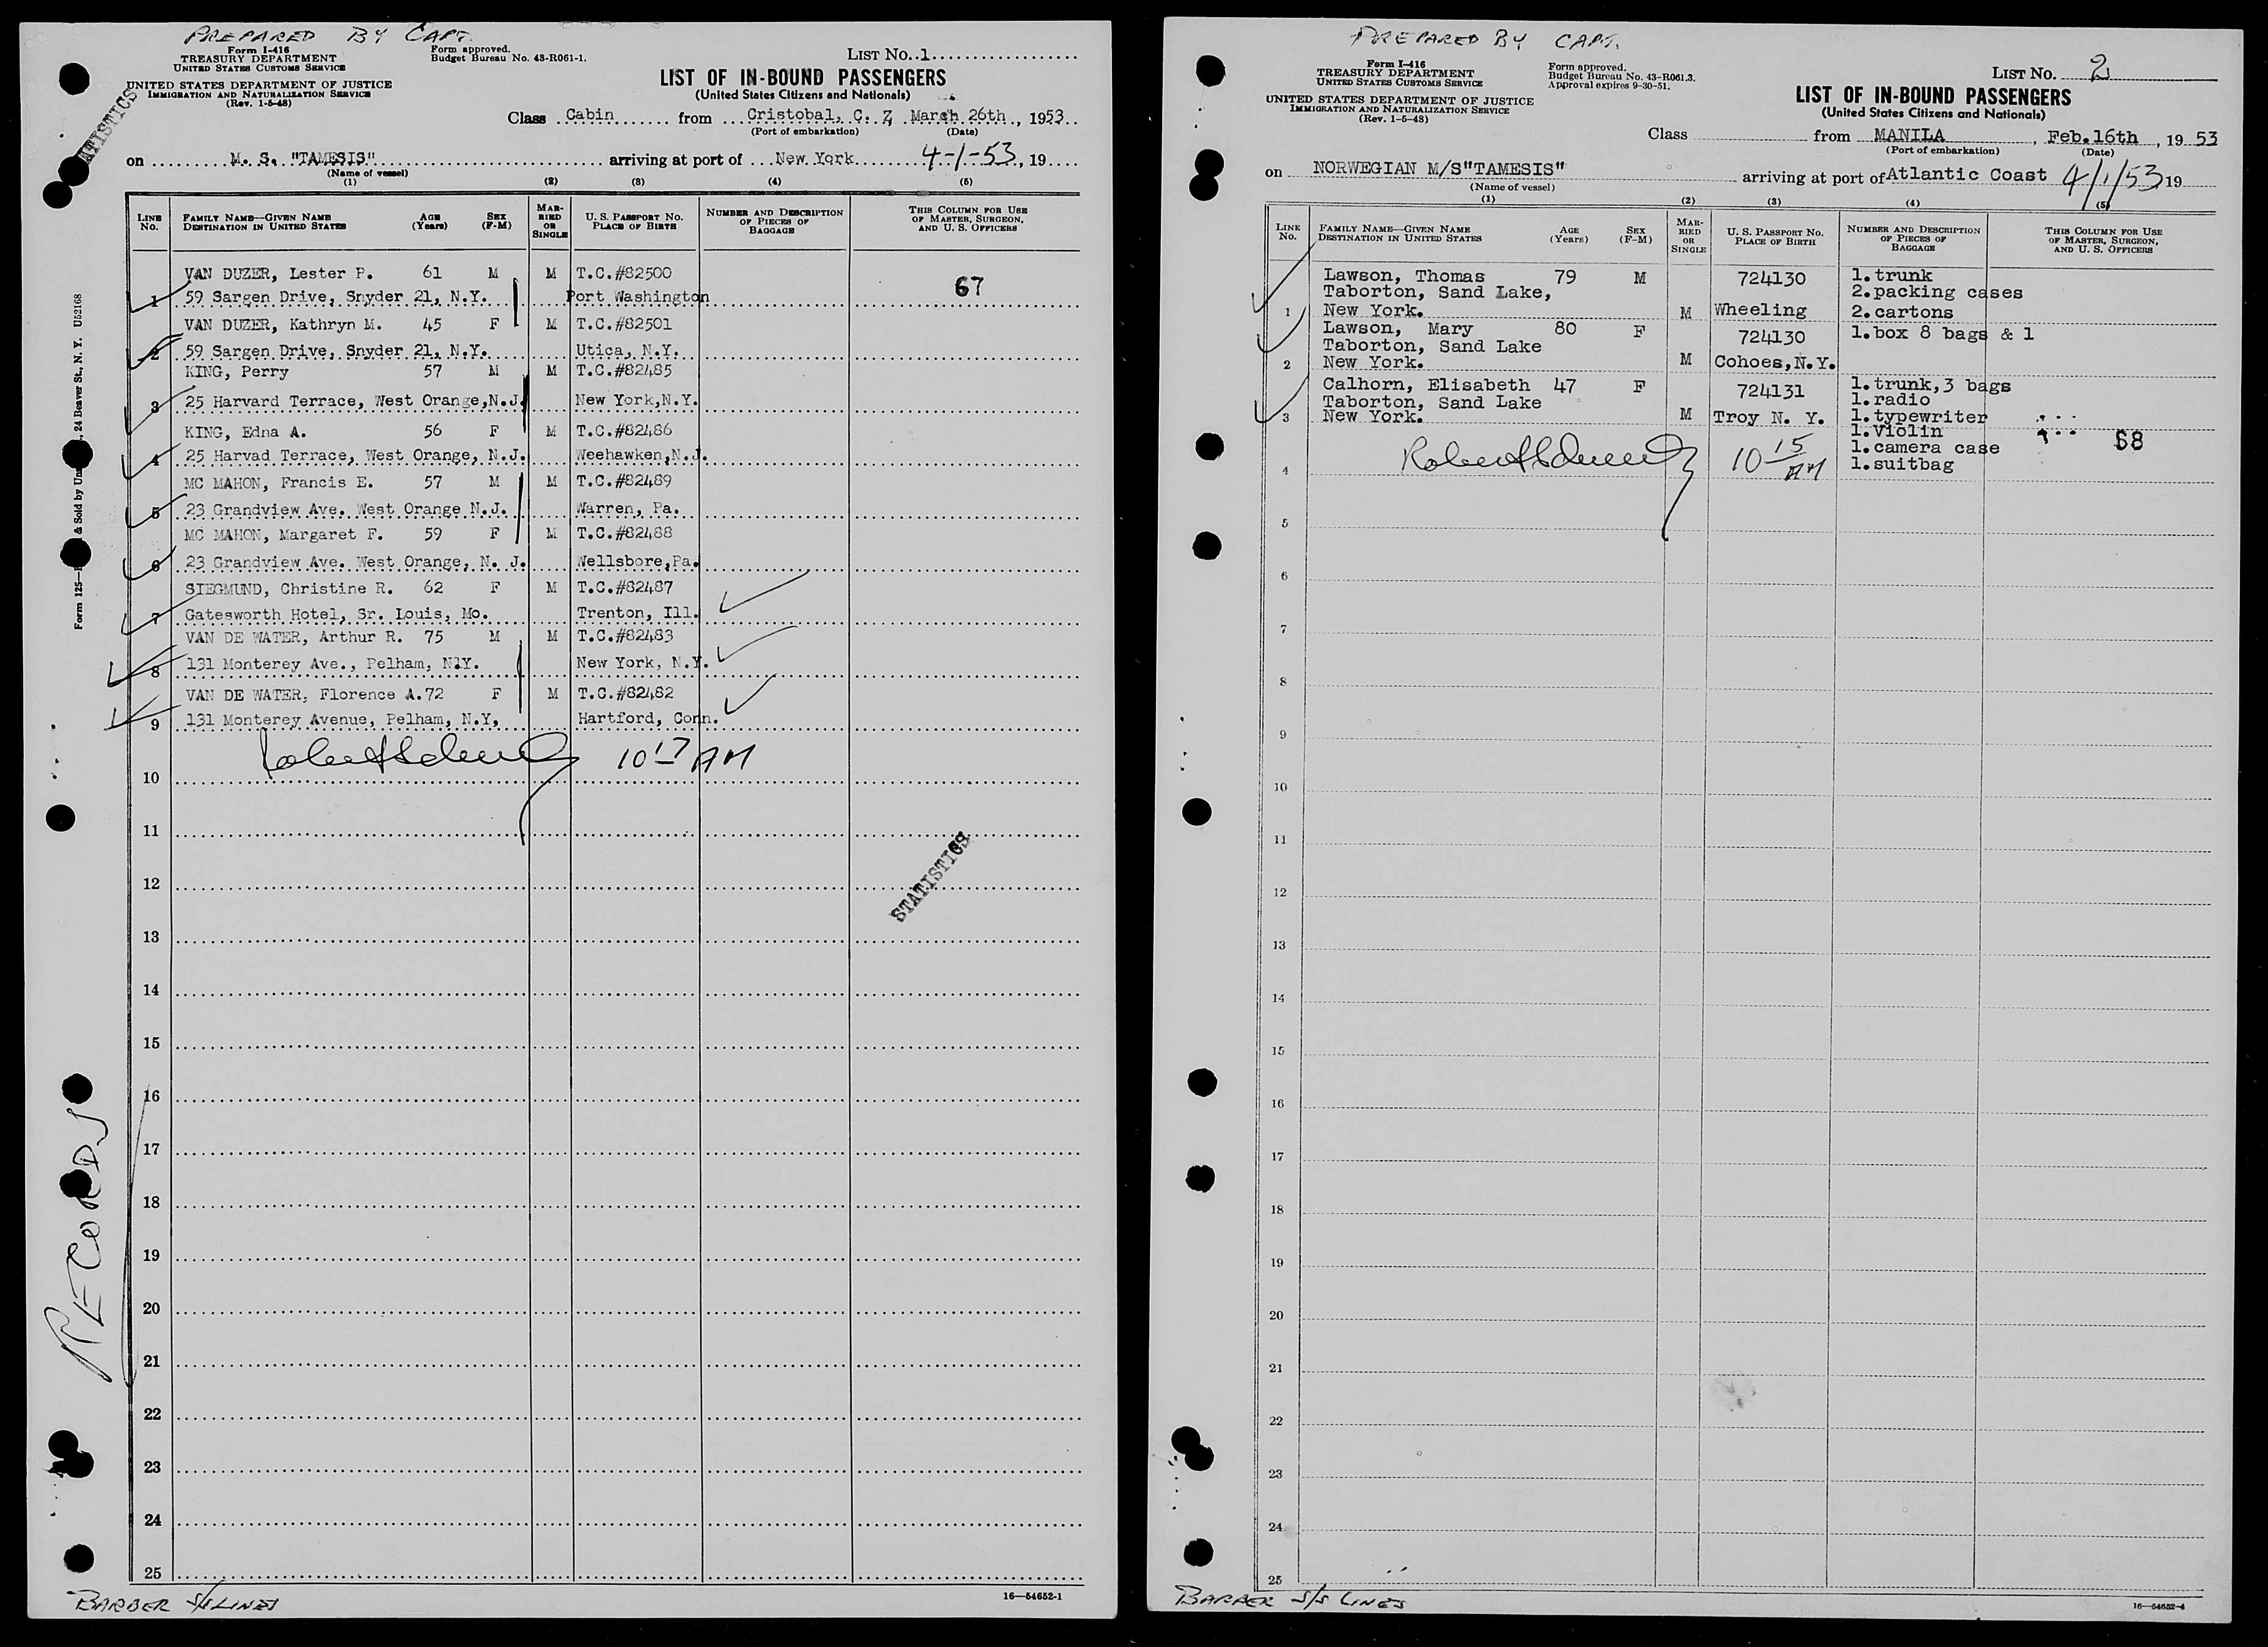 PREPARED BY CAPT.
Form I-416
TREASURY DEPARTMENT
UNITED STATES CUSTOMS SERVICE
Form approved.
Budget Bureau No. 43-R061-1.
LIST No. 1
UNITED STATES DEPARTMENT OF JUSTICE
IMMIGRATION AND NATURALIZATION SERVICE
(Rev. 1-5-48)
LIST OF IN-BOUND PASSENGERS
(United States Citizens and Nationals)
ATISTICS
Class Cabin from Cristobal, C. Z, March 26th, 1953
(Port of embarkation) (Date)
on M. S. "TAMESIS" arriving at port of New York 4-1-53, 19
(Name of vessel)
(1) (2) (3) (4) (5)
LINE No. FAMILY NAME—GIVEN NAME DESTINATION IN UNITED STATES AGE (Years) SEX (F-M) MARRIED OR SINGLE U. S. PASSPORT NO. PLACE OF BIRTH NUMBER AND DESCRIPTION OF PIECES OF BAGGAGE THIS COLUMN FOR USE OF MASTER, SURGEON, AND U. S. OFFICERS
VAN DUZER, Lester P. 61 M M T.C.#82500
67
1 59 Sargen Drive, Snyder 21, N.Y. Port Washington
VAN DUZER, Kathryn M. 45 F M T.C.#82501
2 59 Sargen Drive, Snyder 21, N.Y. Utica, N.Y.
KING, Perry 57 M M T.C.#82485
3 25 Harvard Terrace, West Orange,N.J. New York,N.Y.
KING, Edna A. 56 F M T.C.#82486
4 25 Harvad Terrace, West Orange, N.J. Weehawken,N.J.
MC MAHON, Francis E. 57 M M T.C.#82489
5 23 Grandview Ave. West Orange N.J. Warren, Pa.
MC MAHON, Margaret F. 59 F M T.C.#82488
6 23 Grandview Ave. West Orange, N. J. Wellsbore,Pa.
SIEGMUND, Christine R. 62 F M T.C.#82487
7 Gatesworth Hotel, Sr. Louis, Mo. Trenton, Ill.
VAN DE WATER, Arthur R. 75 M M T.C.#82483
8 131 Monterey Ave., Pelham, N1Y. New York, N.Y.
VAN DE WATER, Florence A. 72 F M T.C.#82482
9 131 Monterey Avenue, Pelham, N.Y, Hartford, Conn.
10 17 AM
10
11
STATISTICS
12
13
14
15
16
17
18
19
20
21
22
23
24
25
Form 125— & Sold by 24 Beaver St., N. Y. U52168
RECORDS
16—54652-1
BARBER S/S LINES
PREPARED BY CAPT.
Form I-416
TREASURY DEPARTMENT
UNITED STATES CUSTOMS SERVICE
Form approved.
Budget Bureau No. 43-R061.3.
Approval expires 9-30-51.
LIST No. 2
UNITED STATES DEPARTMENT OF JUSTICE
IMMIGRATION AND NATURALIZATION SERVICE
(Rev. 1-5-48)
LIST OF IN-BOUND PASSENGERS
(United States Citizens and Nationals)
Class from MANILA, Feb.16th, 19 53
(Port of embarkation) (Date)
on NORWEGIAN M/S"TAMESIS" arriving at port of Atlantic Coast 4/1/53 19
(Name of vessel)
(1) (2) (3) (4) (5)
LINE No. FAMILY NAME—GIVEN NAME DESTINATION IN UNITED STATES AGE (Years) SEX (F-M) MARRIED OR SINGLE U. S. PASSPORT NO. PLACE OF BIRTH NUMBER AND DESCRIPTION OF PIECES OF BAGGAGE THIS COLUMN FOR USE OF MASTER, SURGEON, AND U. S. OFFICERS
Lawson, Thomas 79 M 724130 1.trunk
Taborton, Sand Lake, 2.packing cases
1 New York. M Wheeling 2.cartons
Lawson, Mary 80 F 724130 1.box 8 bags & 1
Taborton, Sand Lake
2 New York. M Cohoes,N.Y.
Calhorn, Elisabeth 47 F 724131 1.trunk,3 bags
Taborton, Sand Lake 1.radio
3 New York. M Troy N. Y. 1.typewriter
1.Violin
68
1.camera case
4 10 15 AM 1.suitbag
5
6
7
8
9
10
11
12
13
14
15
16
17
18
19
20
21
22
23
24
25
16—54652-4
BARBER S/S LINES